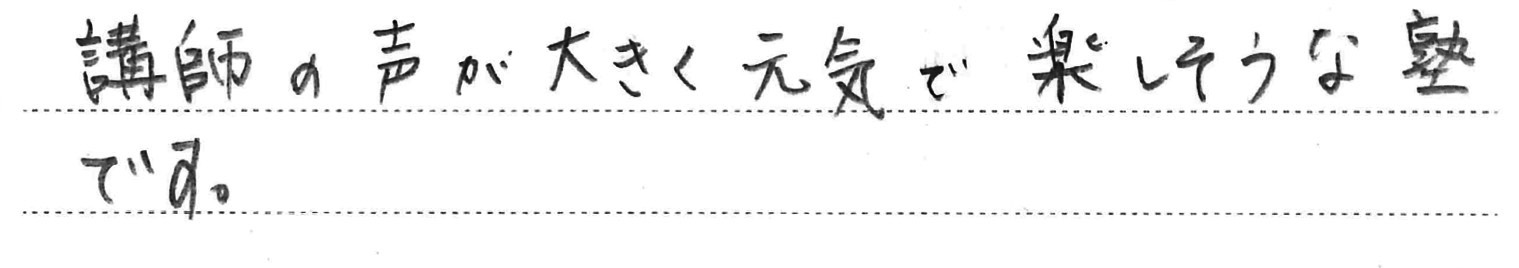 講師の声が大きく元気で楽しそうな塾
です。